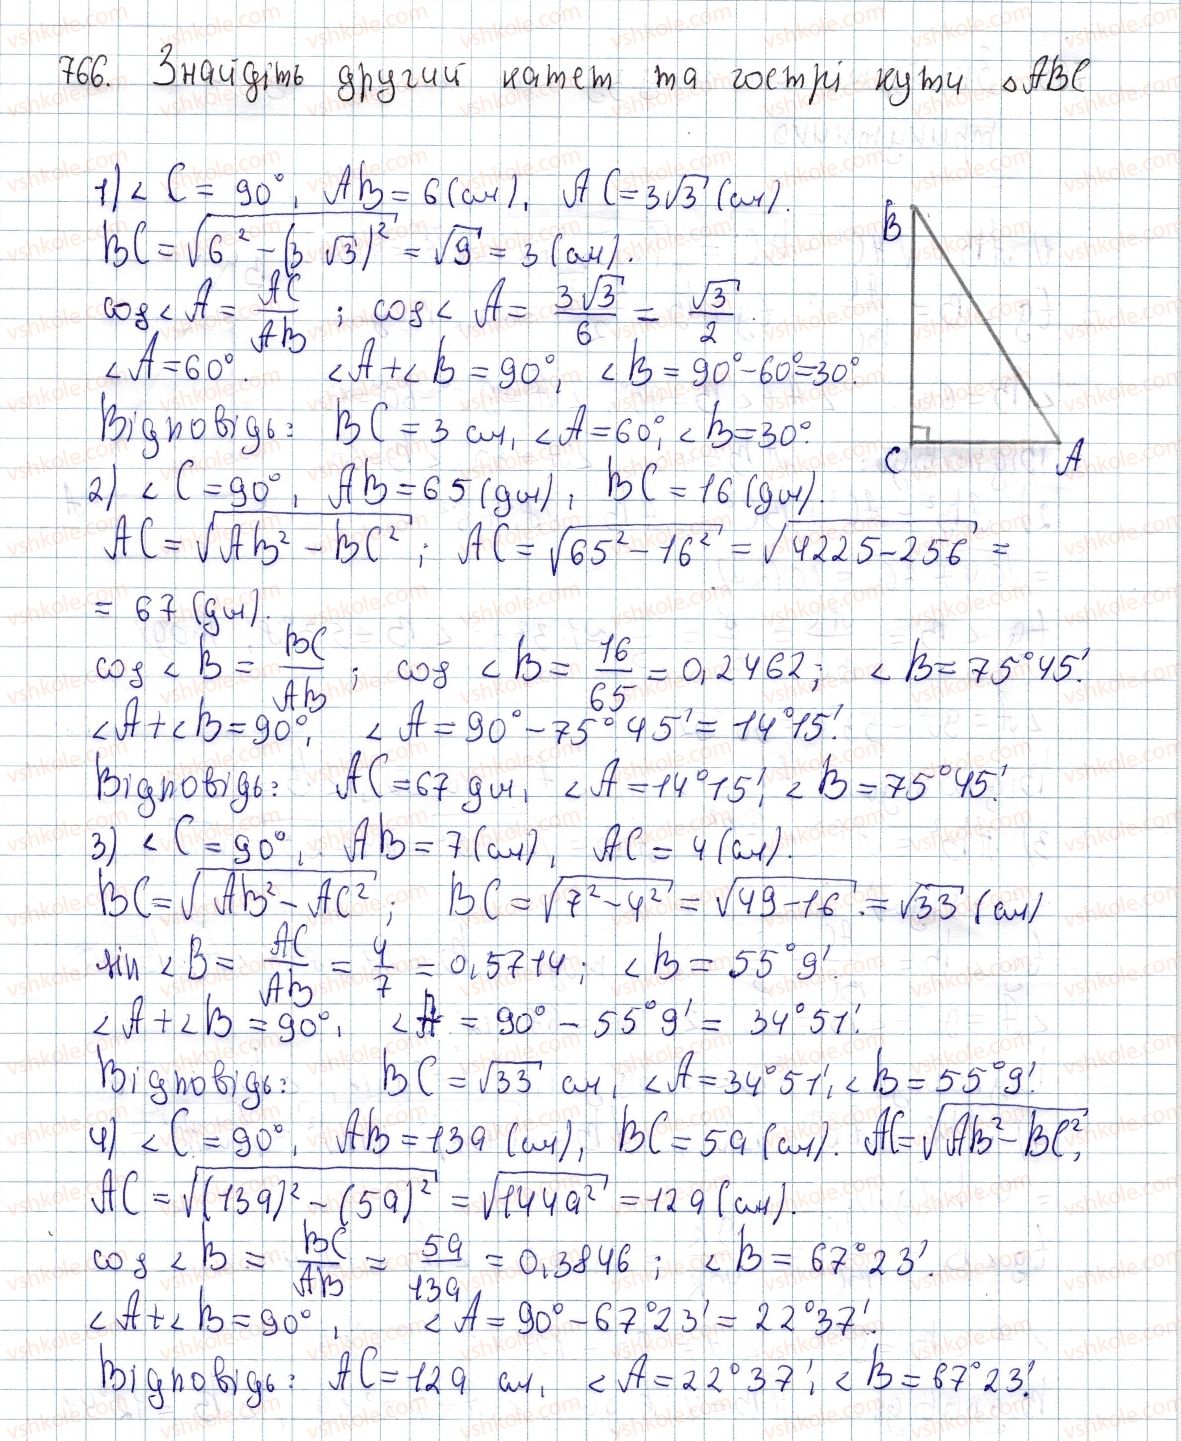 766. Знайдіть другий катет та гострі кути △ABC
1) ∠C = 90°, AB = 6 (см), AC = 3√3 (см).
BC = √(6² - (3√3)²) = √9 = 3 (см).
cos∠A = AC/AB ; cos∠A = 3√3/6 = √3/2.
∠A = 60°. ∠A + ∠B = 90°, ∠B = 90° - 60° = 30°.
Відповідь: BC = 3 см, ∠A = 60°, ∠B = 30°.
B
C
A
2) ∠C = 90°, AB = 65 (дм), BC = 16 (дм).
AC = √(AB² - BC²); AC = √(65² - 16²) = √(4225 - 256) =
= 67 (дм).
cos∠B = BC/AB ; cos∠B = 16/65 = 0,2462; ∠B = 75°45'.
∠A + ∠B = 90°, ∠A = 90° - 75°45' = 14°15'.
Відповідь: AC = 67 дм, ∠A = 14°15', ∠B = 75°45'.
3) ∠C = 90°, AB = 7 (см), AC = 4 (см).
BC = √(AB² - AC²); BC = √(7² - 4²) = √(49 - 16) = √33 (см)
sin∠B = AC/AB = 4/7 = 0,5714; ∠B = 55°9'.
∠A + ∠B = 90°, ∠A = 90° - 55°9' = 34°51'.
Відповідь: BC = √33 см, ∠A = 34°51', ∠B = 55°9'.
4) ∠C = 90°, AB = 13a (см), BC = 5a (см). AC = √(AB² - BC²),
AC = √((13a)² - (5a)²) = √(144a²) = 12a (см).
cos∠B = BC/AB = 5a/13a = 0,3846; ∠B = 67°23'.
∠A + ∠B = 90°, ∠A = 90° - 67°23' = 22°37'.
Відповідь: AC = 12a см, ∠A = 22°37', ∠B = 67°23'.
vshkole.com